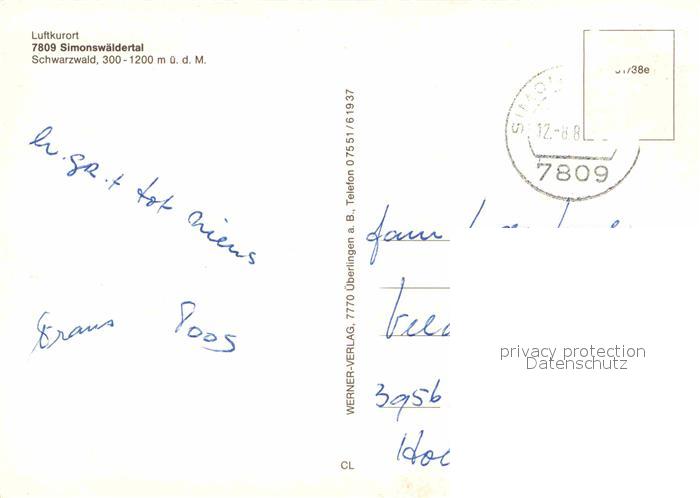 Luftkurort
7809 Simonswäldertal
Schwarzwald, 300-1200 m ü. d. M.
h. gr. + tot ziens
Frans Poos
WERNER-VERLAG, 7770 Überlingen a. B., Telefon 07551/61937
CL
/38e
SIMON
12.-8.8
7809
fam
395b
Hol
privacy protection
Datenschutz